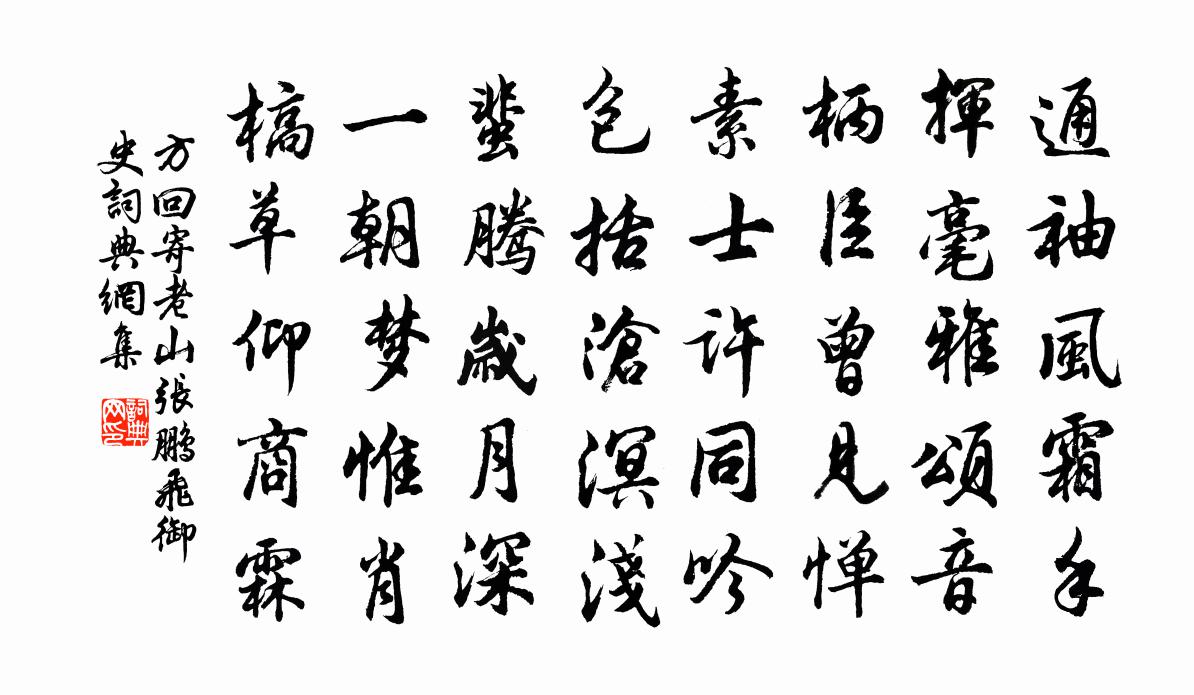 通袖風霜手
揮毫雅頌音
柄臣曾見惮
素士許同吟
包括滄溟淺
蜚騰歲月深
一朝梦惟肖
槁草仰商霖
方回寄老山張鵬飛御
史詞典網集
詞典
网印